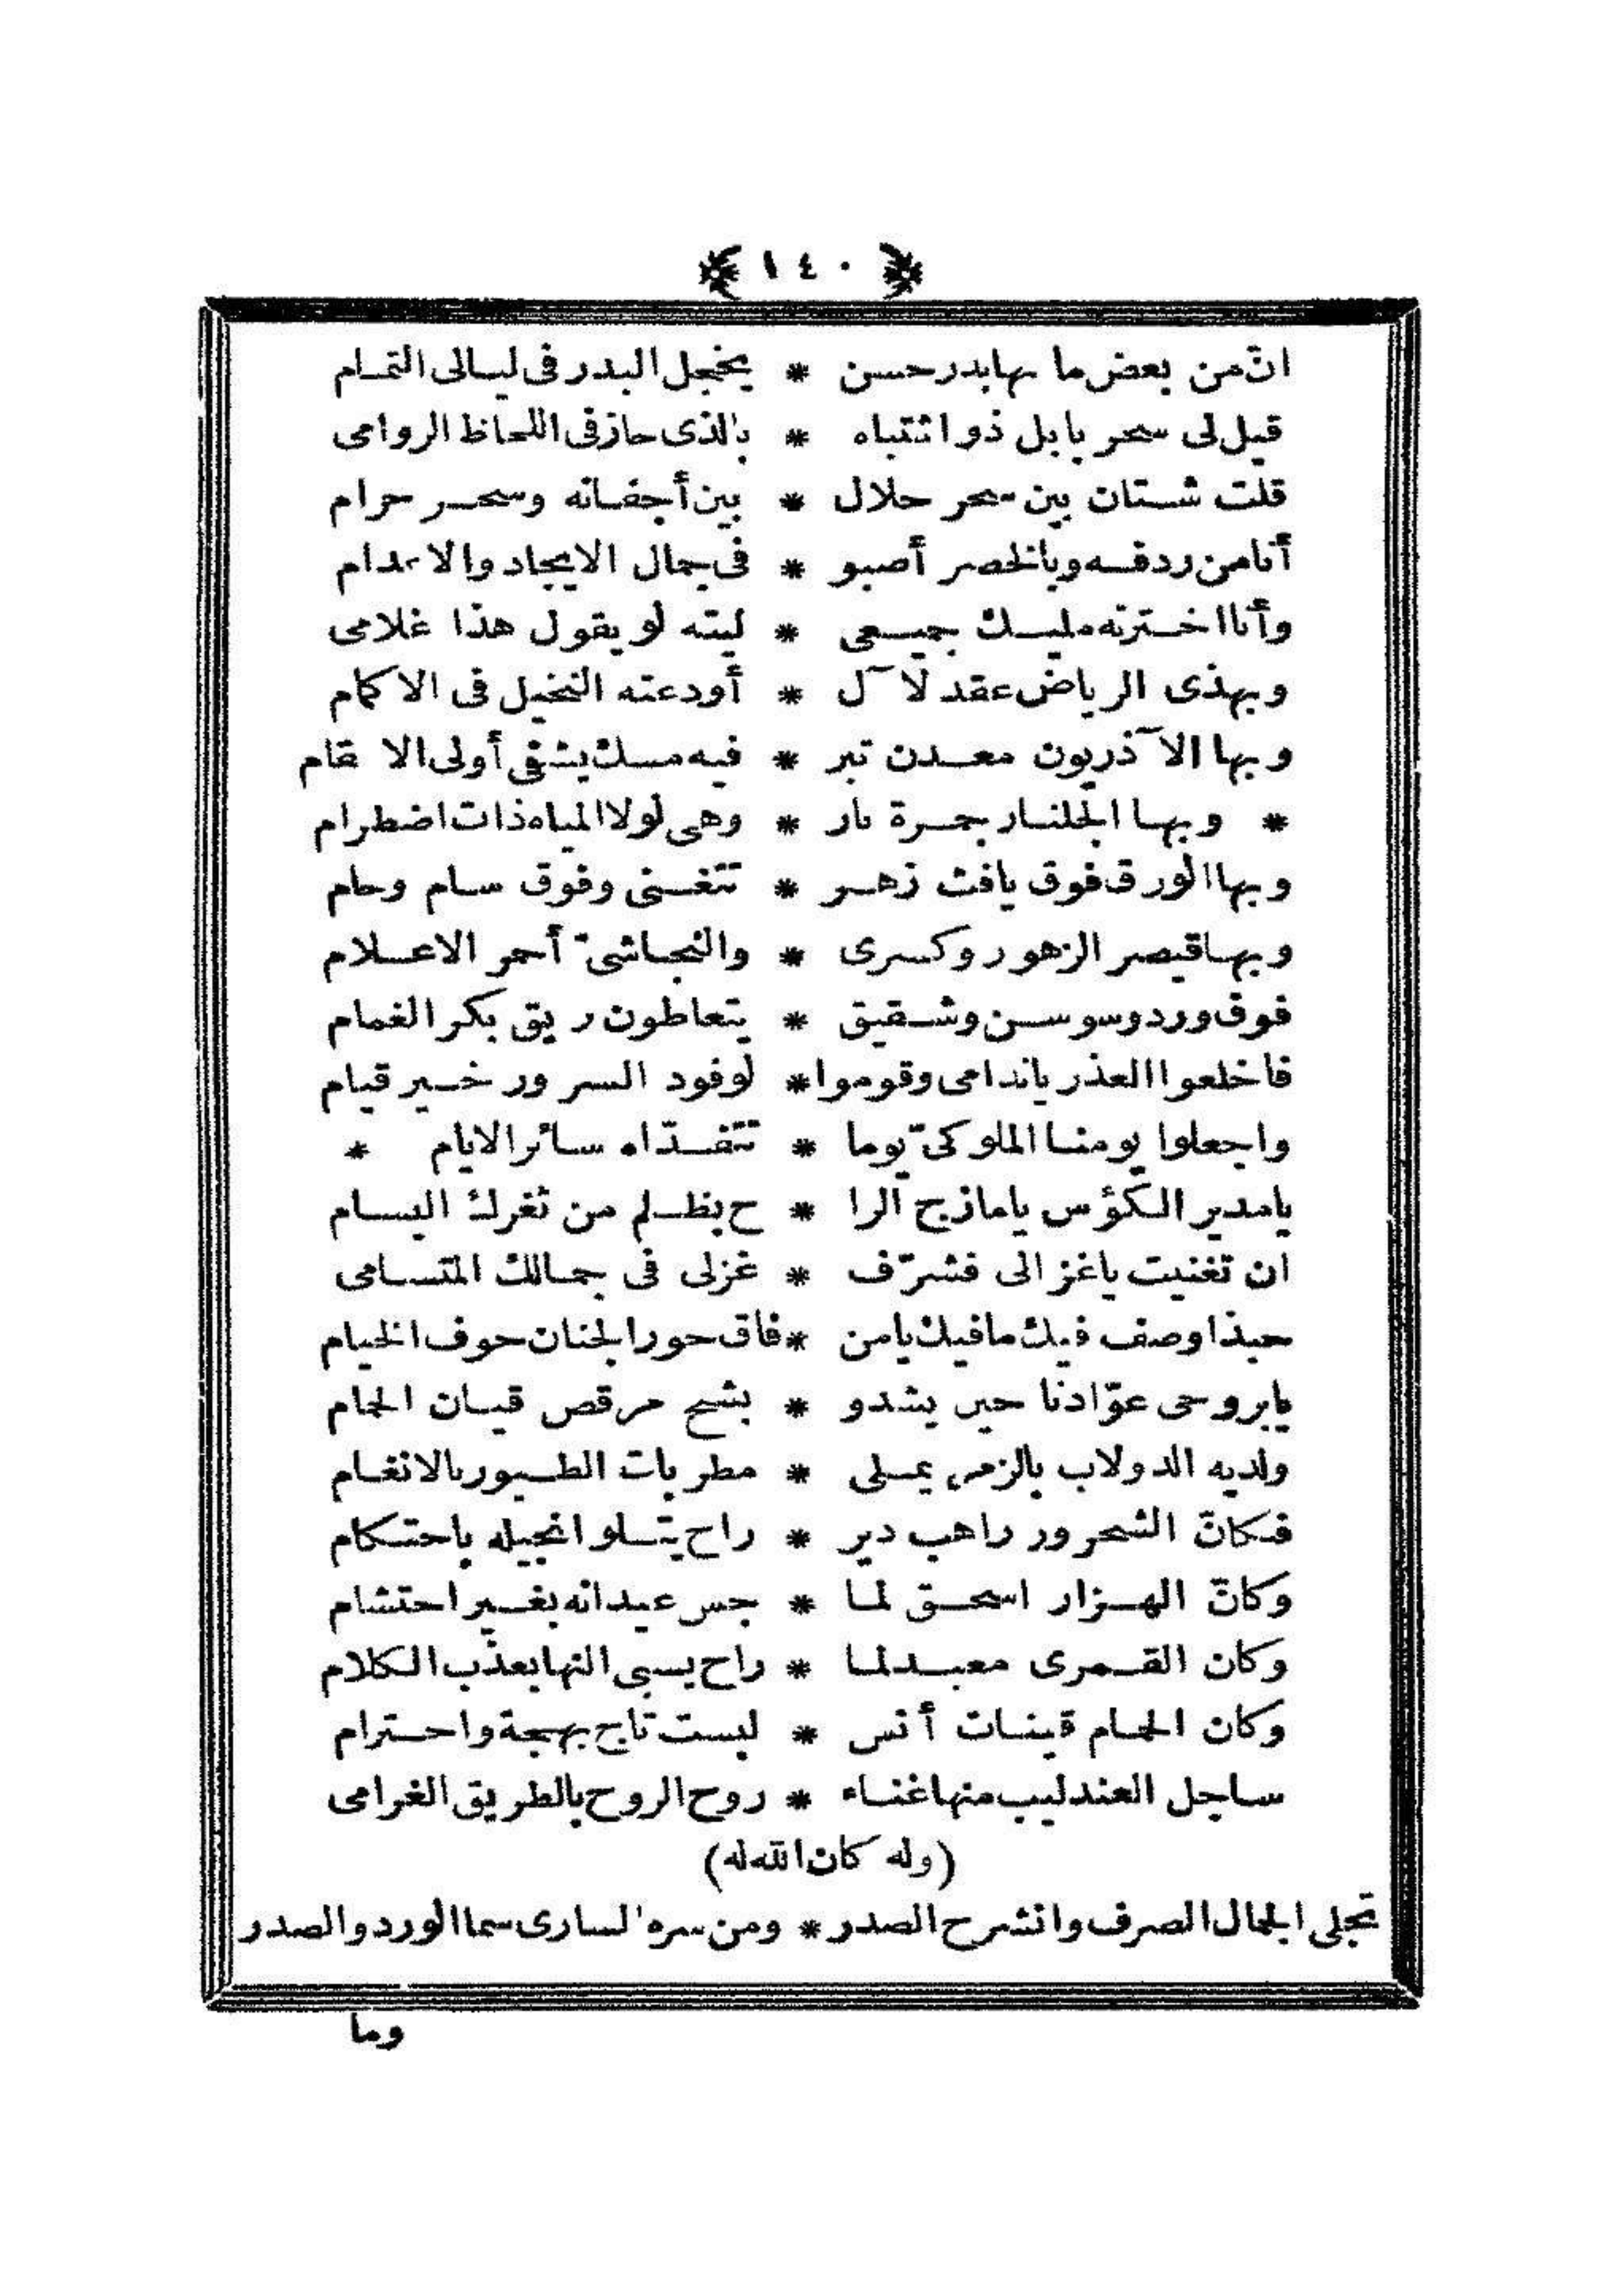 ١٤٠
انّ من بعض ما بها بدر حسن * يخجل البدر فى ليالى التمام
قيل لى سحر بابل ذو اشتباه * بالذى حاز فى اللحاظ الروامى
قلت شتان بين سحر حلال * بين أجفانه وسحر حرام
أنا من ردفه وبالخصر أصبو * فى جمال الايجاد والاعدام
وأنا اخترته مليك جميعى * ليته لو يقول هذا غلامى
وبهذى الرياض عقد لآل * أودعته النخيل فى الاكمام
وبها الآذريون معدن تبر * فيه مسك يشفى أولى الاسقام
* وبها الجلنار جمرة نار * وهى لولا المياه ذات اضطرام
وبها الورق فوق يافث زهر * تتغنى وفوق سام وحام
وبها قيصر الزهور وكسرى * والنجاشىّ أحمر الاعلام
فوق ورد وسوسن وشقيق * يتعاطون ريق بكر الغمام
فاخلعوا العذر ياندامى وقوموا * لوفود السرور خير قيام
واجعلوا يومنا الملوكىّ يوما * تتفدّاه سائر الايام *
يامدير الكؤس يامازج الرا * ح بظلم من ثغرك البسام
ان تغنيت ياغزالى فشرّف * غزلى فى جمالك المتسامى
حبذا وصف فيك مافيك يامن * فاق حور الجنان حوف الخيام
يابروحى عوّادنا حين يشدو * بشج مرقص قيان الحمام
ولديه الدولاب بالزمر يملى * مطربات الطيور بالانغام
فكانّ الشحرور راهب دير * راح يتلو انجيله باحتكام
وكانّ الهزار اسحق لما * جس عيدانه بغير احتشام
وكان القمرى معبد لما * راح يسبى النها بعذب الكلام
وكان الحمام قينات أنس * لبست تاج بهجة واحترام
ساجل العندليب منها غناء * روح الروح بالطريق الغرامى
(وله كان الله له)
تجلى الجمال الصرف وانشرح الصدر * ومن سره السارى سما الورد والصدر
وما